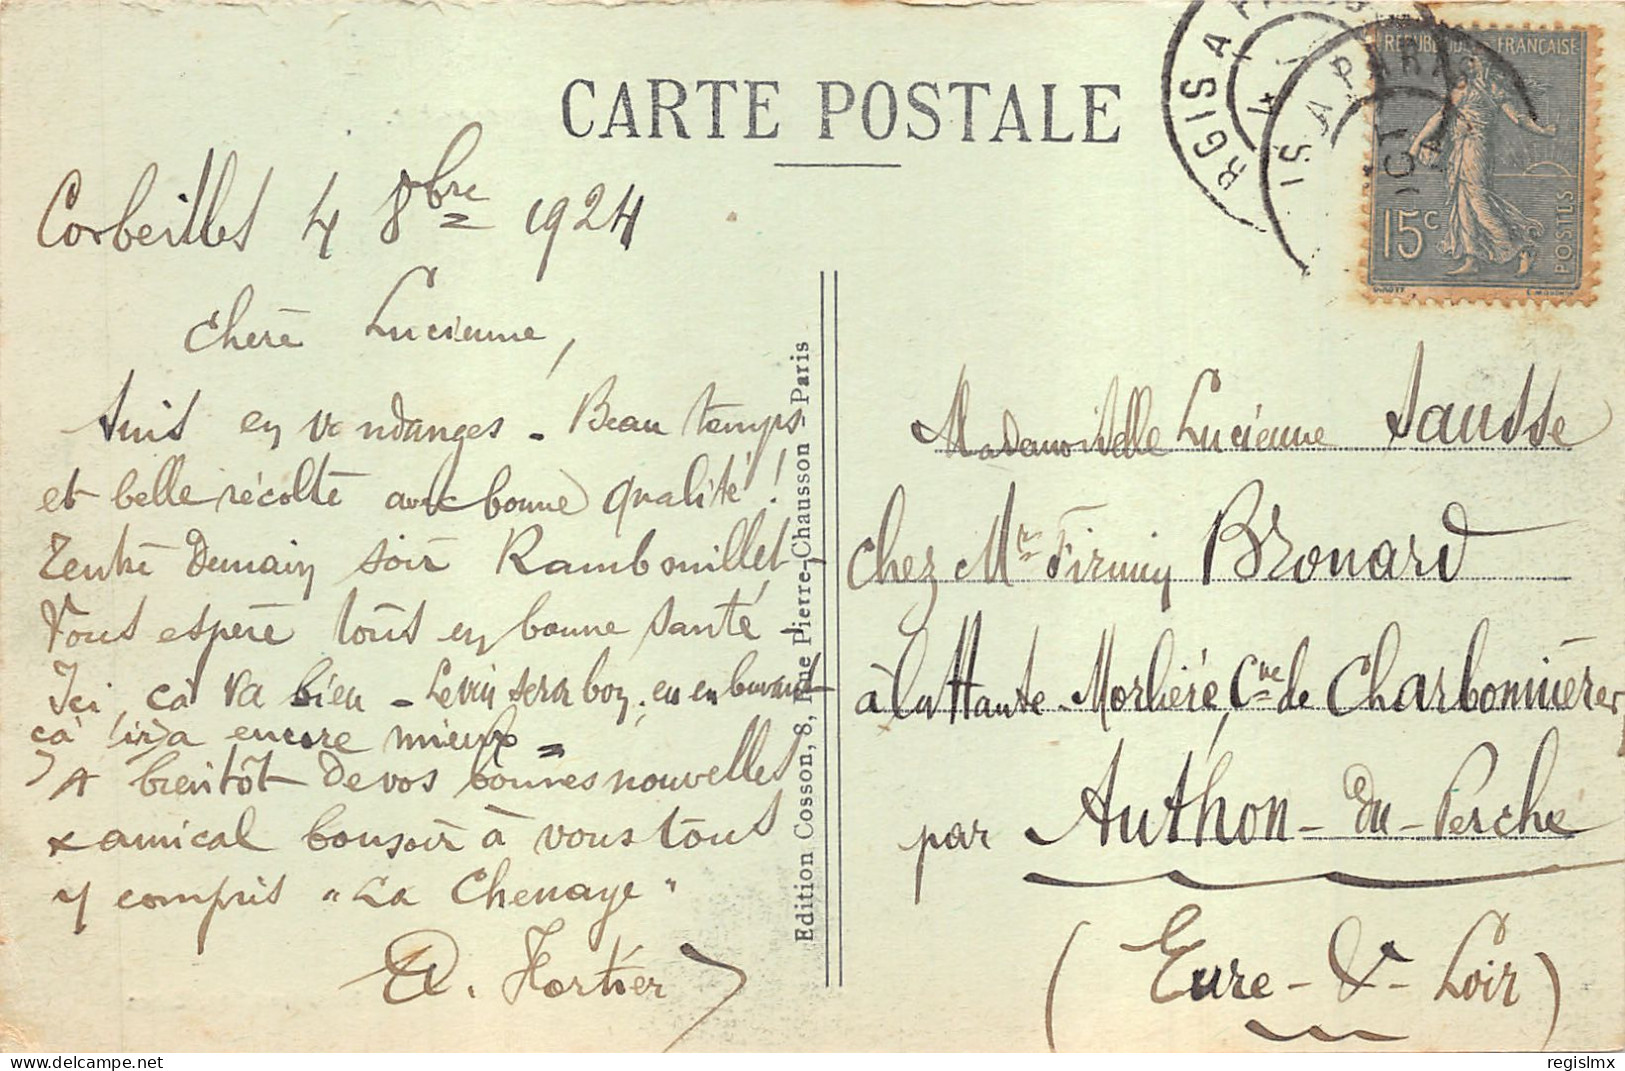 CARTE POSTALE
Corbeilles 4 8bre 1924
Chère Lucienne,
Suis en vendanges - Beau temps
et belle récolte avec bonne qualité !
Rentre demain soir Rambouillet -
Vous espère tous en bonne santé -
Ici, cà va bien - Le vin sera bon ; en en buvant
cà ira encore mieux =
A bientôt de vos bonnes nouvelles
& amical bonsoir à vous tous
y compris "La Chenaye"
Hortier
Edition Cosson, 8, Rue Pierre-Chausson - Paris
RGIS A PARIS
IS A PARIS
OCT
REPUBLIQUE FRANÇAISE
15c
POSTES
Mademoiselle Lucienne Sausse
chez Mr Firmin Brouard
à la Haute-Morlière, Cne de Charbonnières
par Authon-du-Perche
(Eure-&-Loir)
regislmx